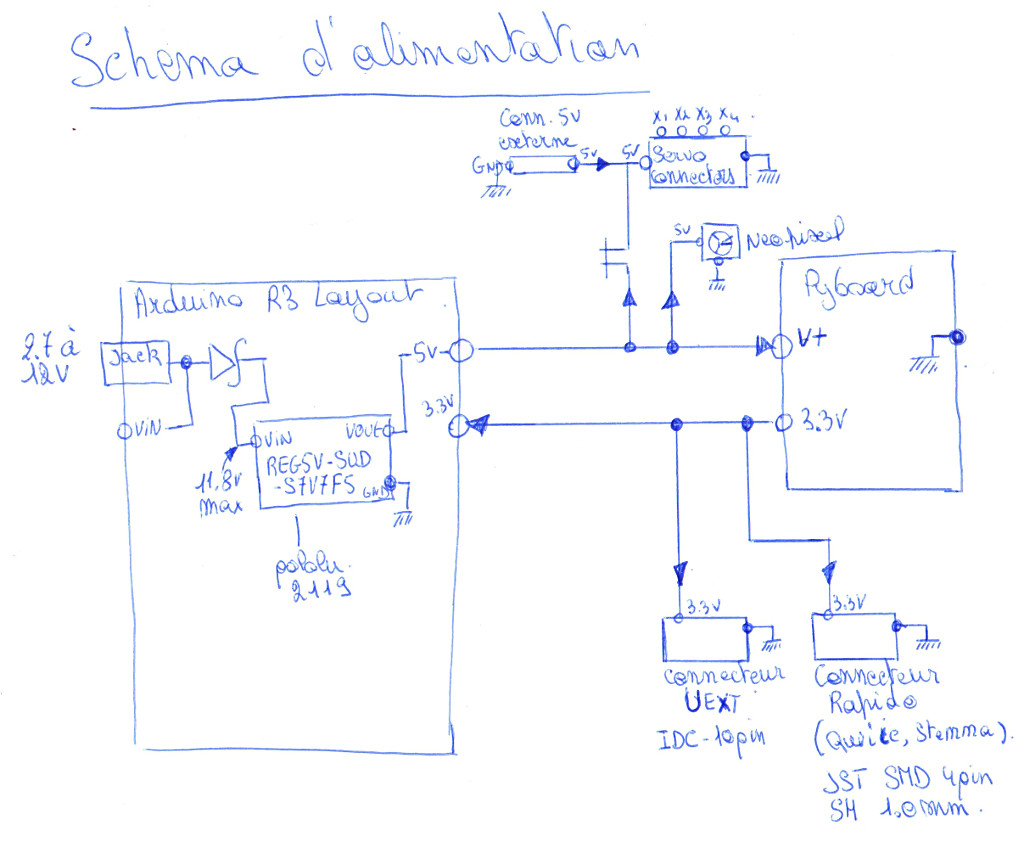 Schéma d'alimentation
Conn. 5V
externe
GND
5V
5V
X1 X2 X3 X4
Servo
Connectors
5V
Neopixel
Arduino R3 Layout
Pyboard
2.7 à
12V
Jack
5V
V+
3.3V
3.3V
VIN
VIN
VOUT
REG5V-SUD
-S7V7F5
GND
11,8V
max
pololu
2119
3.3V
3.3V
Connecteur
UEXT
IDC-10pin
Connecteur
Rapide
(Qwiic, Stemma).
JST SMD 4pin
SH 1.0mm.